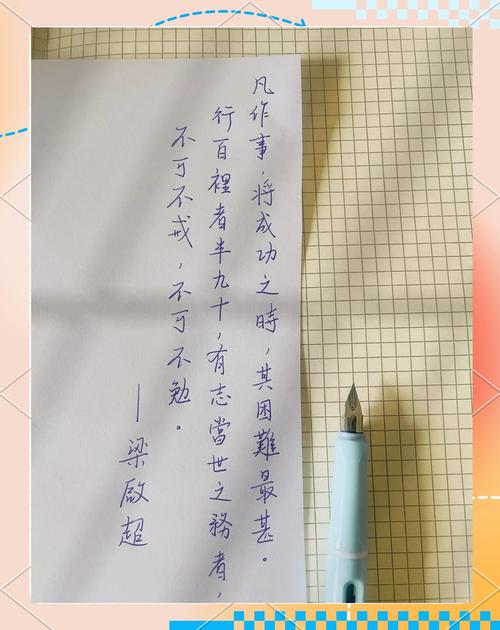 凡作事，将成功之時，其困難最甚。
行百裡者半九十，有志當世之務者，
不可不戒，不可不勉。
—梁啟超